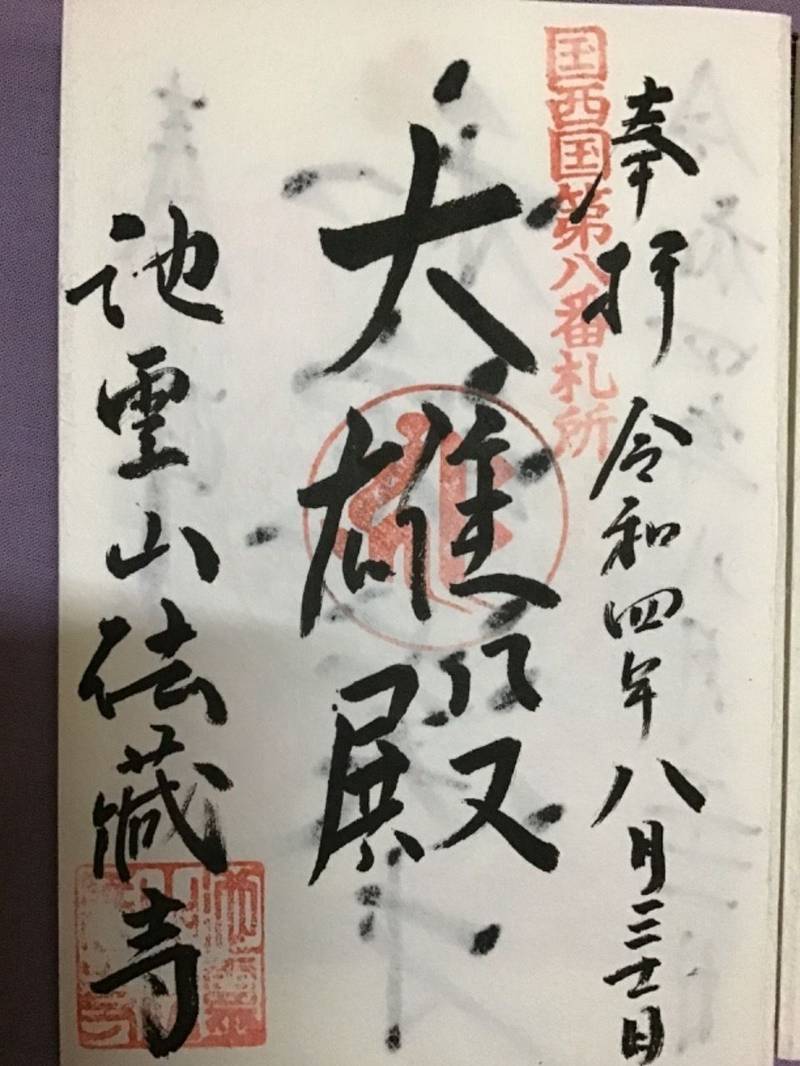 奉拝 令和四年八月三十一日
国西国第八番札所
大雄殿
池霊山法蔵寺